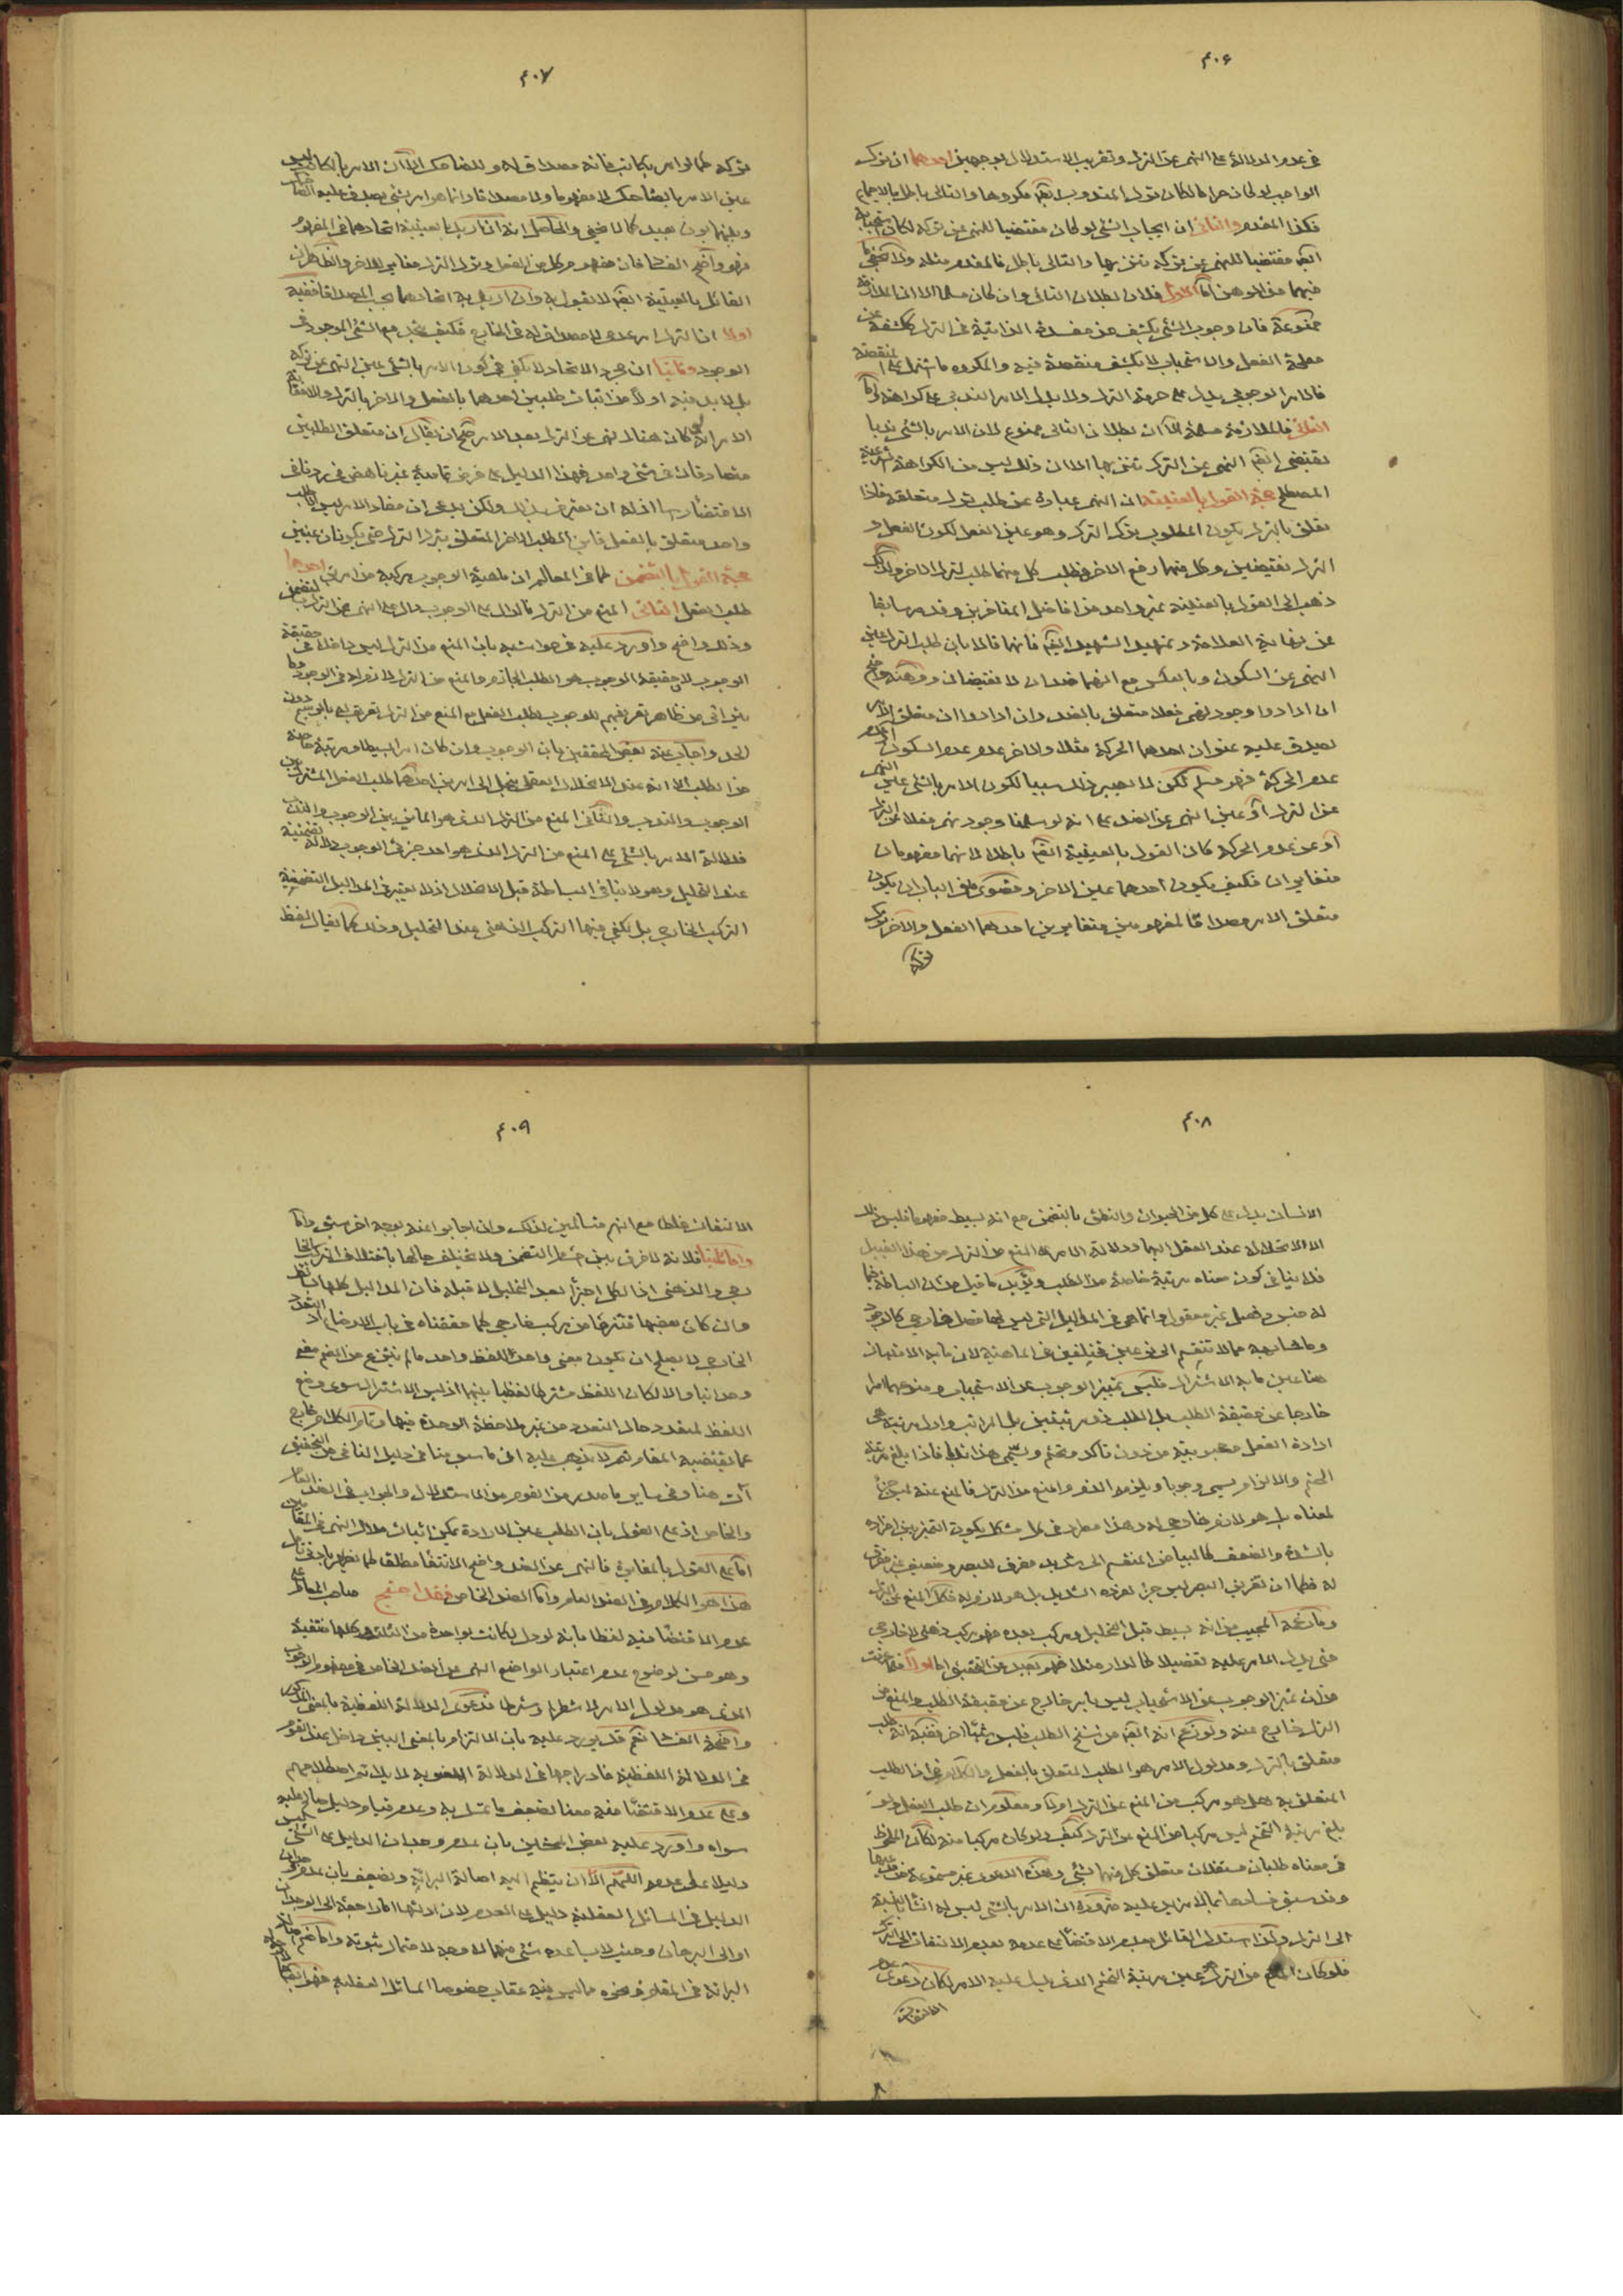 ۴۰۶
في عدم الدلالة على النهي عن الترك وتقريب الاستدلال بوجهين احدهما ان ترك
الواجب لو كان حراما لكان ترك المندوب ايضا مكروها والتالي باطل بالاجماع
فكذا المقدم والثاني ان ايجاب الشيء لو كان مقتضيا للنهي عن تركه لكان
ايضا مقتضيا للنهي عن تركه تنزيها والتالي باطل فالمقدم مثله ولا يخفى ما
فيهما من الوهن اما الاول فلان بطلان التالي وان كان مسلما الا ان الملازمة
ممنوعة فان وجوب الشيء يكشف عن مفسدة الذاتية في الترك
الفعل والاستحباب لا يكشف منقصة فيه والمكروه ما اشتمل على منقصة
فالامر الوجوبي يدل على حرمة الترك ولا يدل الامر الندبي على كراهته واما
الثاني فالملازمة مسلمة الا ان بطلان التالي ممنوع لان الامر بالشيء ندبا
يقتضي ايضا النهي عن الترك تنزيها الا ان ذلك ليس من الكراهة
المصطلح حجة القول بالعينية ان النهي عبارة عن طلب ترك متعلقه فاذا
تعلق بالترك يكون المطلوب ترك الترك وهو عين الفعل لكون الفعل و
الترك نقيضين وكل منهما رفع الاخر فطلب كل منهما طلب لترك الاخر ولذلك
ذهب الى القول بالعينية غير واحد من افاضل المتاخرين وقد مر سابقا
عن نهاية العلامة وتمهيد الشهيد ايضا فانهما قالا بان طلب الترك عين
النهي عن السكون وبالعكس مع انهما ضدان لا نقيضان ووهنه واضح
ان ارادوا وجود نهي فعلا متعلق بالضد وان ارادوا ان متعلق الامر
يصدق عليه عنوان احدهما الحركة مثلا والاخر عدم عدم السكون
عدم الحركة فهو مسلم لكن لا يصير ذلك سببا لكون الامر بالشيء عين النهي
عن الترك او عين النهي عن الضد على انه لو سلمنا وجود نهي فعلا عن الترك
او عن عدم الحركة كان القول بالعينية ايضا باطلا لانهما مفهومان
متغايران فكيف يكون احدهما عين الاخر وقصوى ما في الباب ان يكون
متعلق الامر مصداقا لمفهومين متغايرين احدهما الفعل والاخر ترك
تركه
۴۰۷
تركه كما لو امر بكاتب فانه مصداق له وللضاحك الا ان الامر بالكاتب ليس
عين الامر بالضاحك لا مفهوما ولا مصداقا وانما هو امر بشيء يصدق عليه الضاحك
وبينهما بون بعيد كما لا يخفى والحاصل انه ان اريد بالعينية اتحادهما في المفهوم
فهو واضح الفساد فان مفهوم كل من الفعل وترك الترك مغاير للاخر والظاهر ان
القائل بالعينية ايضا لا يقول به وان اريد به اتحادهما بحسب المصداق ففيه
اولا ان الترك امر عدمي لا مصداق له في الخارج فكيف يتحد مع الشيء الموجود في
الوجود وثانيا ان مجرد الاتحاد لا يكفي في كون الامر بالشيء عين النهي عن تركه
بل لا بد فيه اولا من اثبات طلبين احدهما بالفعل والاخر بالترك
الامر انه كان هناك نهي عن الترك بعد الامر صح ان يقال ان متعلق الطلبين
متصادقان في شيء واحد فهذا الدليل على فرض تماميته غير ناهض في رد نافي
الاقتضاء راسا اذ له ان يعترف بذلك ولكن يدعي ان مفاد الامر ليس الا طلب
واحد متعلق بالفعل فاين الطلب الاخر المتعلق بترك الترك حتى يكونان عينين
حجة القول بالتضمن كما في المعالم ان ماهية الوجوب مركبة من امرين احدهما
طلب الفعل الثاني المنع من الترك فالدال على الوجوب دال على النهي عن الترك بالتضمن
وذلك واضح واورد عليه في حواشيه بان المنع من الترك ليس داخلا في حقيقة
الوجوب لان حقيقة الوجوب هو الطلب الجازم والمنع من الترك لازم له في الوجود وما
يتراءى من ظاهر تعريفهم للوجوب بطلب الفعل مع المنع من الترك تعريف له بالرسم دون
الحد واجاب عنه بعض المحققين بان الوجوب وان كان امرا بسيطا ومرتبة خاصة
من الطلب الا انه عند الانحلال العقلي ينحل الى امرين احدهما طلب الفعل المشترك بين
الوجوب والندب والثاني المنع من الترك الذي هو المائز بين الوجوب والندب
فدلالة الامر بالشيء على المنع من الترك الذي هو احد جزئي الوجوب دلالة تضمنية
عند التحليل وهو لا ينافي البساطة قبل الانحلال اذ لا يعتبر في المداليل التضمنية
التركيب الخارجي بل يكفي فيها التركيب الذهني عند التحليل وذلك كما يقال لفظ
۴۰۸
الانسان يدل على كل من الحيوان والنطق بالتضمن مع انه بسيط مفهوما فليس ذلك
الا لانحلاله عند العقل اليهما ودلالة الامر على المنع من الترك من هذا القبيل
فلا ينافي كون معناه مرتبة خاصة من الطلب ويؤيد ما قيل من ان البساطة فيما
له جنس وفصل غير معقول وانما هي في المداليل التي ليس لها فصل خارجي كالوجود
وما شابهه مما لا تنقسم الى نوعين مختلفين في الماهية لان ما به الامتياز
هنا عين ما به الاشتراك فليس تميز الوجوب عن الاستحباب ونحوهما امرا
خارجا عن حقيقة الطلب بل الطلب ذو مرتبتين بل المراتب واول مرتبته هي
ارادة الفعل محبوبيته من دون تاكد وتحتم ويسمى هذا ندبا فاذا بلغ مرتبة
الحتم والالزام يسمى وجوبا ويلزمه الذم والمنع من الترك فالمنع عنه ليس جزء
لمعناه بل هو لازم خارجي له وهذا مطرد في كل مشكك يكون التميز بين افراده
بالشدة والضعف كالبياض المنقسم الى شديد مفرق للبصر وضعيف غير مفرق
له فكما ان تفريق البصر ليس جزء لفرده الشديد بل هو لازم له فكذا المنع عن الترك
وما زعمه المجيب من انه بسيط قبل التحليل ومركب بعده فهو مركب ذهني لا خارجي
حتى يدل الامر عليه تفصيلا كالدار مثلا فهو بعيد عن التحقيق اما اولا فلما عرفت
من ان تميز الوجوب عن الاستحباب ليس بامر خارج عن حقيقة الطلب والمنع من
الترك خارج عنه ولو زعم انه ايضا من سنخ الطلب فليس شيئا اخر ففيه انه طلب
متعلق بالترك ومدلول الامر هو الطلب المتعلق بالفعل والكلام في ان الطلب
المتعلق به هل هو مركب من المنع عن الترك اولا ومعلوم ان طلب الفعل ولو
بلغ مرتبة التحتم ليس مركبا من المنع عن الترك كيف ولو كان مركبا منه لكان الملحوظ
في معناه طلبان مستقلان متعلق كل منهما بشيء وهذه الدعوى غير مسموعة
وقد سبق فسادها بما لا مزيد عليه ضرورة ان الامر بالشيء ليس له انشاء بالنسبة
الى الترك ولذا استدل القائل بعدم الاقتضاء على عدمه بعدم الالتفات الى الترك
فلو كان المنع من الترك عين مرتبة التحتم الذي يدل عليه الامر لكان دعوى عدم
الالتفات
۴۰۹
الالتفات غلطا مع انهم متسالمين لذلك وان اجابوا عنه بوجه اخر ستعرفه
واما ثانيا فلانه لا فرق بين التضمن ولا يختلف حالها باختلاف التركيب الخا
رجي والذهني اذ الكل اجزاء بعد التحليل لا قبله فان المداليل كلها بسائط
وان كان بعضها منتزعا من مركب خارجي كما حققناه في باب الاوضاع اذ المتعدد
الخارجي لا يصلح ان يكون معنى واحد للفظ واحد ما لم ينتزع من الجميع مفهوم
وحدانيا والا لكان اللفظ مشتركا لفظيا بينهما اذ ليس الاشتراك سوى وضع
اللفظ لمتعدد حال التعدد من غير ملاحظة الوحدة فيها وتمام الكلام خارج
عما يقتضيه المقام ثم لا يذهب عليك ان ما سبق منا في دليل النافي من التحقيق
آت هنا وفي ساير ما صدر من القوم من الاستدلال والجواب في الضد العام
والخاص اذ على القول بان الطلب عين الارادة يمكن اثبات ملاك النهي في المقامين
اما على القول بالمغايرة فالنهي عن الضد واضح الانتفاء مطلقا كما يظهر بادنى تامل
هذا هو الكلام في الضد العام واما الضد الخاص فقد احتج صاحب المعالم على
عدم الاقتضاء فيه لفظا بانه لو دل لكانت بواحدة من الثلث وكلها منتفية
وهو حسن لوضوح عدم اعتبار الواضع النهي عن الضد الخاص في مفهوم الوجوب
الذي هو مدلول الامر لا شطرا ولا شرطا فدعوى الدلالة اللفظية بالمعنى المذكور
واضحة الفساد نعم قد يورد عليه بان الالتزام بالمعنى البين داخل عند القوم
في الدلالة اللفظية فادراجها في الدلالة المعنوية لا يلائم اصطلاحهم
وعلى عدم الاقتضاء فيه معنا لضعف ما تمسك به وعدم قيام دليل صالح عليه
سواه واورد عليه بعض المحشين بان عدم وجدان الدليل على الشيء ليس
دليلا على عدمه اللهم الا ان ينظم اليه اصالة البرائة ويضعف بان عدم وجدان
الدليل في المسائل العقلية دليل على العدم لان ادلتها اما راجعة الى الوجدان
او الى البرهان وحيث لا يساعده شيء منهما لا وجه لاحتمال ثبوته واما
البرائة في المقام ونحوه مما ليس فيه عقاب خصوصا المسائل العقلية فهو ايضا